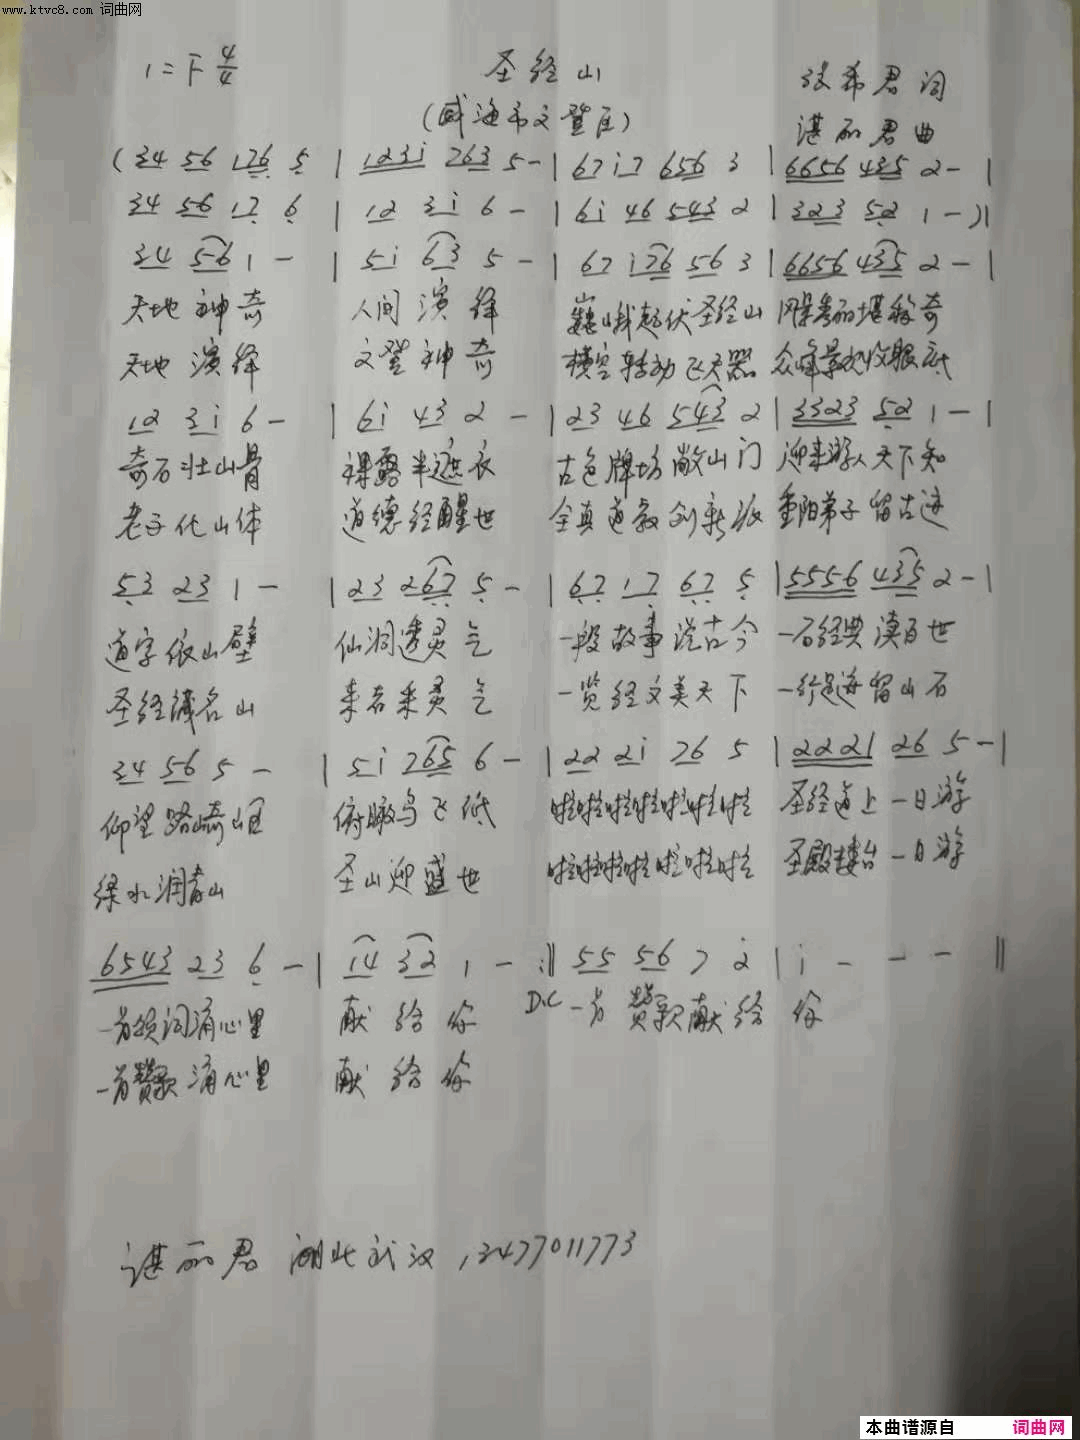 www.ktvc8.com 词曲网
1=F 4/4 圣经山 张希君词
(威海市文登区) 谌丽君曲
(34 56 176 5 | 123i 763 5 - | 67 i7 656 3 | 6656 435 2 - |
34 56 17 6 | 12 3i 6 - | 6i 46 543 2 | 323 52 1 - )|
34 56 1 - | 5i 63 5 - | 67 i76 56 3 | 6656 435 2 - |
天地神奇 人间演绎 巍峨起伏圣经山 风景秀丽堪称奇
天地演绎 文登神奇 横空转动飞天器 众峰景观收眼底
12 3i 6 - | 6i 43 2 - | 23 46 543 2 | 3323 52 1 - |
奇石壮山骨 裸露半遮衣 古色牌坊敞山门 迎来游人天下知
老子化山体 道德经醒世 全真道教创新派 重阳弟子留古迹
53 23 1 - | 23 267 5 - | 67 17 67 5 | 5556 435 2 - |
道字依山壁 仙洞透灵气 一段故事说古今 一石经典渡百世
圣经藏名山 来者采灵气 一览经文美天下 一行足迹留山石
34 56 5 - | 5i 765 6 - | 22 2i 76 5 | 2221 26 5 - |
仰望路崎岖 俯瞰鸟飞低 啦啦啦啦啦啦啦 圣经道上一日游
绿水润青山 圣山迎盛世 啦啦啦啦啦啦啦 圣殿楼台一日游
6543 23 6 - | 14 32 1 - :‖ 55 56 7 2 | i - - - ‖
一首颂词涌心里 献给你 D.C 一首赞歌献给你
一首赞歌涌心里 献给你
谌丽君 湖北武汉 13477011773
本曲谱源自 词曲网